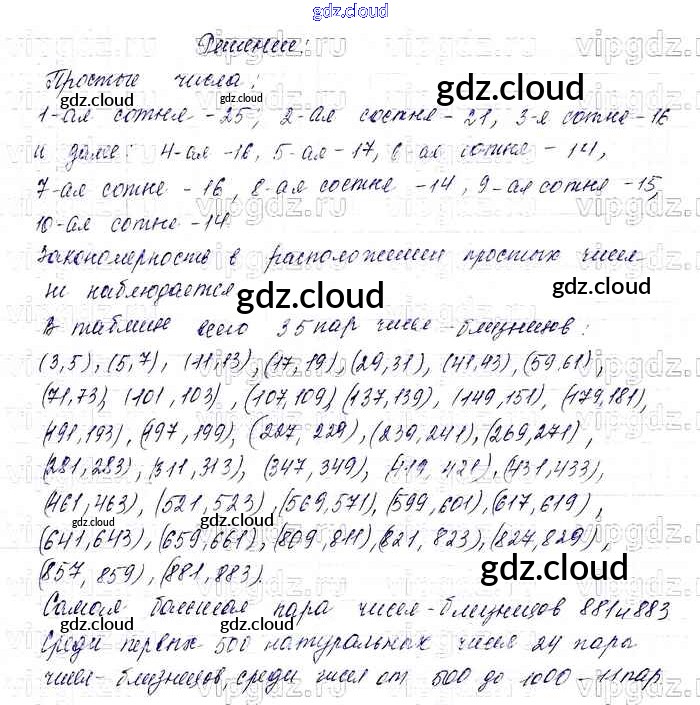 gdz.cloud
Решение:
Простые числа:
1-ая сотня - 25, 2-ая сотня - 21, 3-я сотня - 16
и далее: 4-ая - 16, 5-ая - 17, 6-ая сотня - 14,
7-ая сотня - 16, 8-ая сотня - 14, 9-ая сотня - 15,
10-ая сотня - 14
Закономерность в расположении простых чисел
не наблюдается
В таблице всего 35 пар чисел-близнецов:
(3,5), (5,7), (11,13), (17,19), (29,31), (41,43), (59,61),
(71,73), (101,103), (107,109), (137,139), (149,151), (179,181),
(191,193), (197,199), (227,229), (239,241), (269,271),
(281,283), (311,313), (347,349), (419,421), (431,433),
(461,463), (521,523), (569,571), (599,601), (617,619),
(641,643), (659,661), (809,811), (821,823), (827,829),
(857,859), (881,883).
Самая большая пара чисел-близнецов 881 и 883
Среди первых 500 натуральных чисел 24 пара
чисел-близнецов, среди чисел от 500 до 1000 - 11 пар.